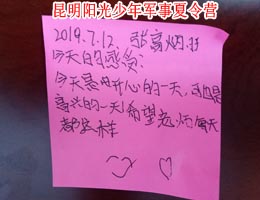 昆明阳光少年军事夏令营
2019.7.12
今天的感受:
今天是最开心的一天,也是
高兴的一天!希望老师每天
都这样